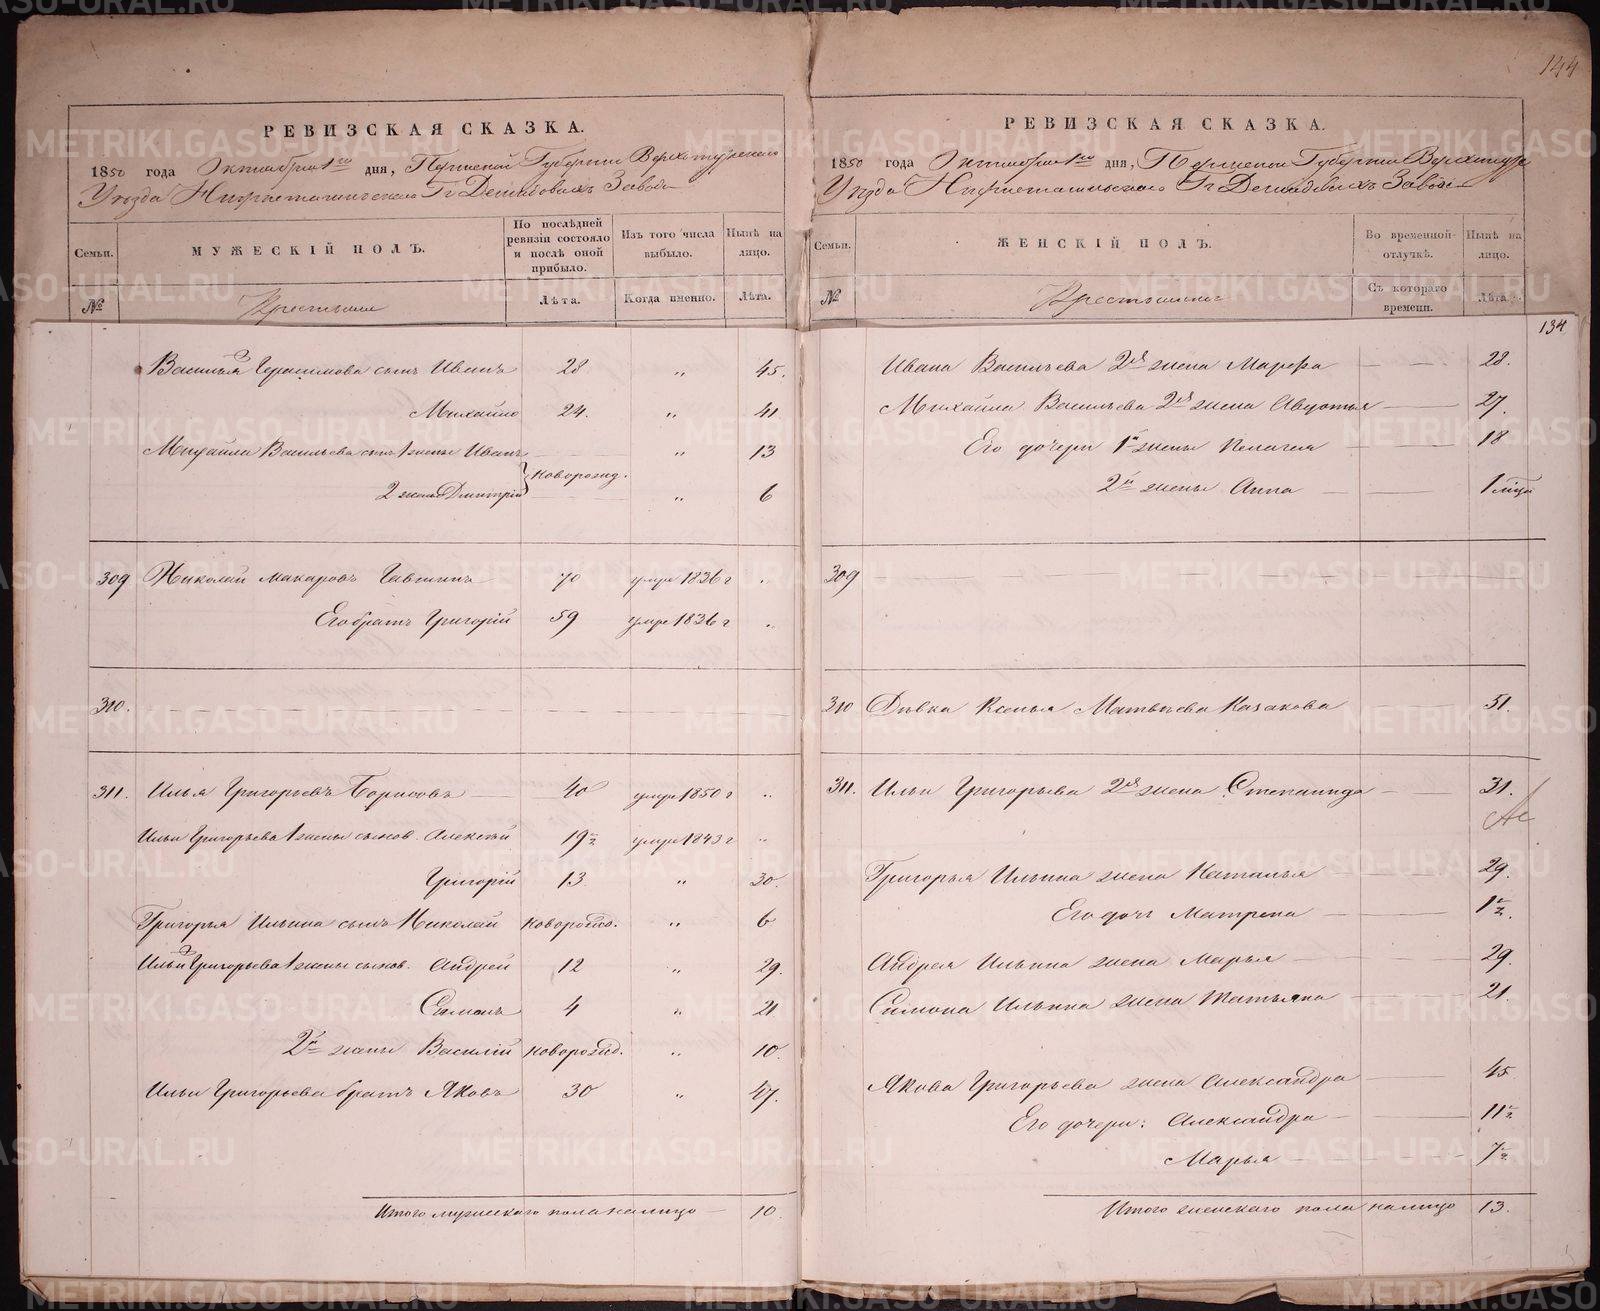 144
РЕВИЗСКАЯ СКАЗКА.
1850 года Октября 1го дня, Пермской Губернии Верхотурского
Уезда Нижнетагильского Гг Демидовыхъ Завода
Семьи.
МУЖЕСКІЙ ПОЛЪ.
По послѣдней ревизіи состояло и послѣ оной прибыло.
Изъ того числа выбыло.
Нынѣ на лицо.
№
Крестьяне
Лѣта.
Когда именно.
Лѣта.
Василья Герасимова сынъ Иванъ 28 " 45.
Михайло 24. " 41
Михайла Васильева сынъ 1 жены Иванъ " 13
новорожд.
2 жены Дмитрій " 6
309 Николай Макаровъ 70 умре 1836 г "
Его братъ Григорій 59 умре 1836 г "
310.
311. Илья Григорьевъ Борисовъ 40 умре 1850 г "
Ильи Григорьева 1 жены сынов. Алексѣй 19½ умре 1843 г "
Григорій 13 " 30.
Григорья Ильина сынъ Николай новорожд. " 6
Ильи Григорьева 1 жены сынов. Андрей 12 " 29.
Симонъ 4 " 21
2й жены Василій новорожд. " 10.
Ильи Григорьева братъ Яковъ 30 " 47.
Итого мужескаго пола на лицо 10.
РЕВИЗСКАЯ СКАЗКА.
1850 года Октября 1го дня, Пермской Губернии Верхотурс
Уезда Нижнетагильского Гг Демидовыхъ Завода
Семьи.
ЖЕНСКІЙ ПОЛЪ.
Во временной отлучкѣ.
Нынѣ на лицо.
№
Крестьянки
Съ котораго времени.
Лѣта.
134
Ивана Васильева 2я жена Марфа 28.
Михайла Васильева 2я жена Авдотья 27.
Его дочери 1й жены Пелагея 18
2й жены Анна 1 мѣся
309
310 Дѣвка Ксенья Матвѣева Казакова 51.
311. Ильи Григорьева 2я жена Степанида 31.
Григорья Ильина жена Наталья 29.
Его дочь Матрена 1½.
Андрея Ильина жена Марья 29.
Симона Ильина жена Татьяна 21.
Якова Григорьева жена Александра 45
Его дочери: Александра 11½
Марья 7½
Итого женскаго пола на лицо 13.
METRIKI.GASO-URAL.RU